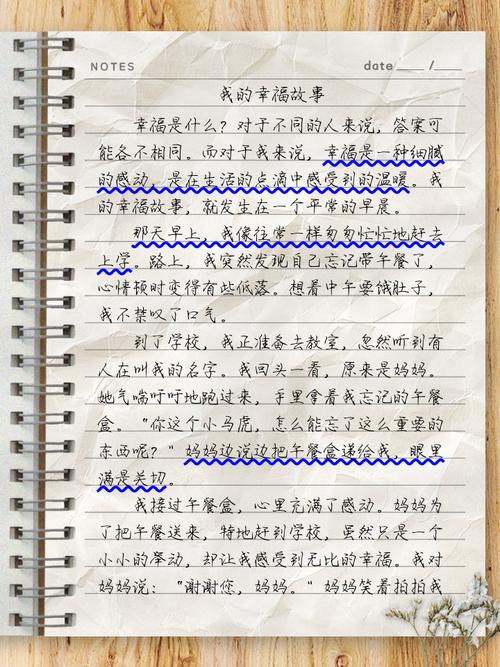 NOTES date____/____
我的幸福故事
幸福是什么？对于不同的人来说，答案可
能各不相同。而对于我来说，幸福是一种细腻
的感动，是在生活的点滴中感受到的温暖。我
的幸福故事，就发生在一个平常的早晨。
那天早上，我像往常一样匆匆忙忙地赶去
上学。路上，我突然发现自己忘记带午餐了，
心情顿时变得有些低落。想着中午要饿肚子，
我不禁叹了口气。
到了学校，我正准备去教室，忽然听到有
人在叫我的名字。我回头一看，原来是妈妈。
她气喘吁吁地跑过来，手里拿着我忘记的午餐
盒。“你这个小马虎，怎么能忘了这么重要的
东西呢？”妈妈边说边把午餐盒递给我，眼里
满是关切。
我接过午餐盒，心里充满了感动。妈妈为
了把午餐送来，特地赶到学校，虽然只是一个
小小的举动，却让我感受到无比的幸福。我对
妈妈说：“谢谢您，妈妈。”妈妈笑着拍拍我